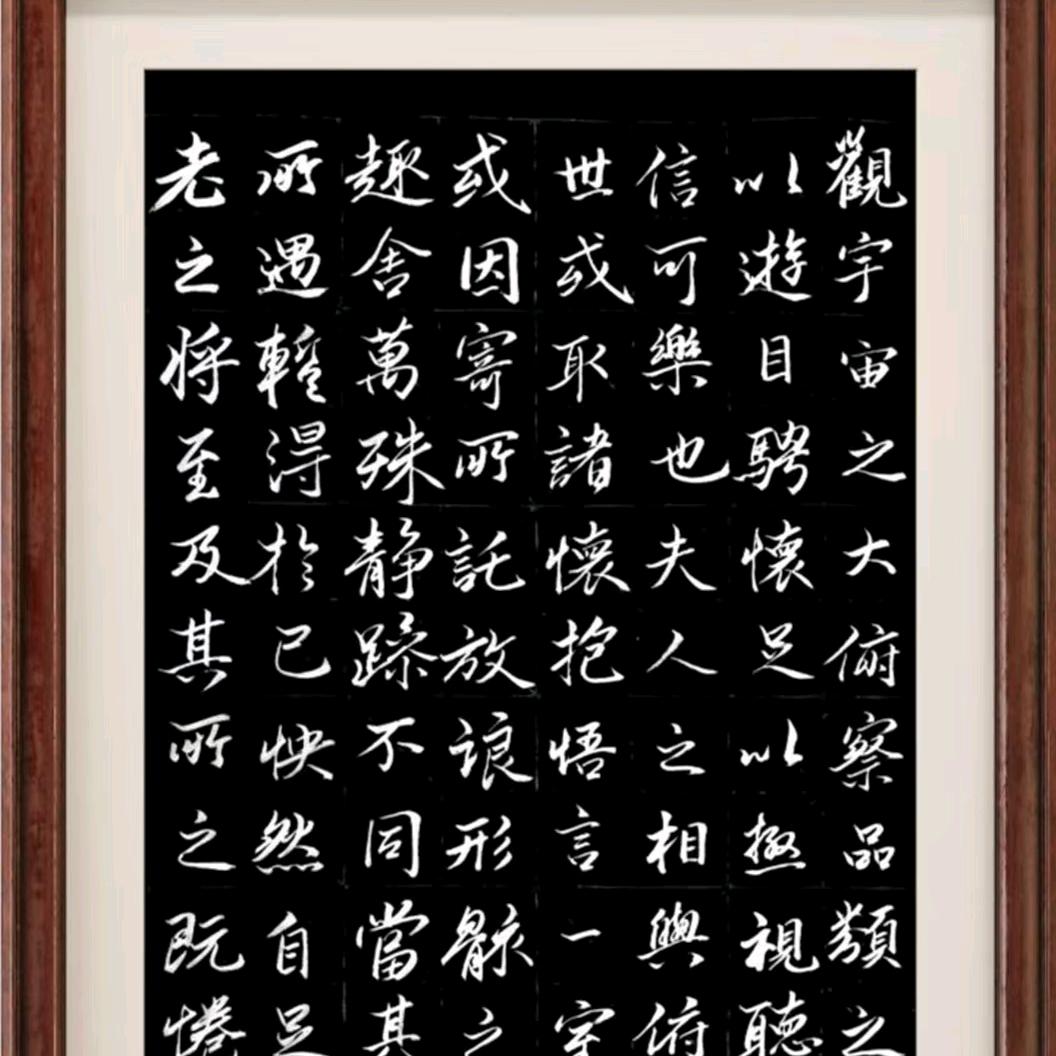 觀宇宙之大俯察品類之
以遊目騁懷足以極視聽
信可樂也夫人之相與俯
世或取諸懷抱悟言一室
或因寄所託放浪形骸之
趣舍萬殊静躁不同當其
所遇蹔得於己怏然自足
老之将至及其所之既惓